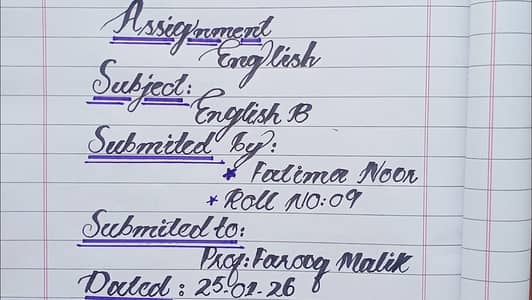 Assignment
English
Subject:
English B
Submited by:
Fatima Noor
Roll No:09
Submited to:
Prof: Farooq Malik
Dated : 25-01-26